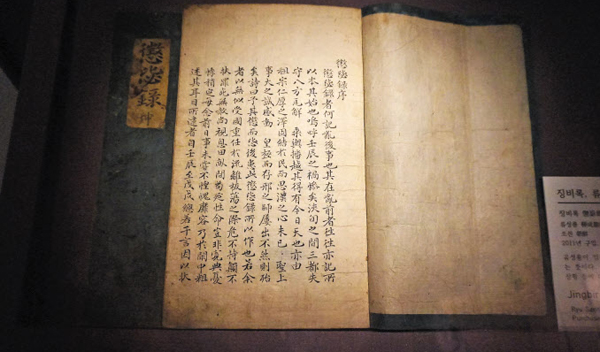 懲毖錄序
懲毖錄者何記亂後事也其在亂前者往往亦記所
以本其始也嗚呼壬辰之禍慘矣浹旬之間三都失
守八方瓦解 乘輿播越其得有今日天也亦由
祖宗仁厚之澤固結於民而思漢之心未已 聖上
事大之誠感動 皇極而存邢之師屢出不然則殆
矣詩曰予其懲而毖後患此懲毖錄所以作也若余
者以無似受國重任於流離板蕩之際危不持顚不
扶罪死無赦尚視息田畝間苟延性命豈非寬典憂
悸稍定每念前日事未嘗不惶愧靡容乃於閑中粗
述其耳目所逮者自壬辰至戊戌總若干言因以狀
懲毖錄
坤
징비록, 류
징비록